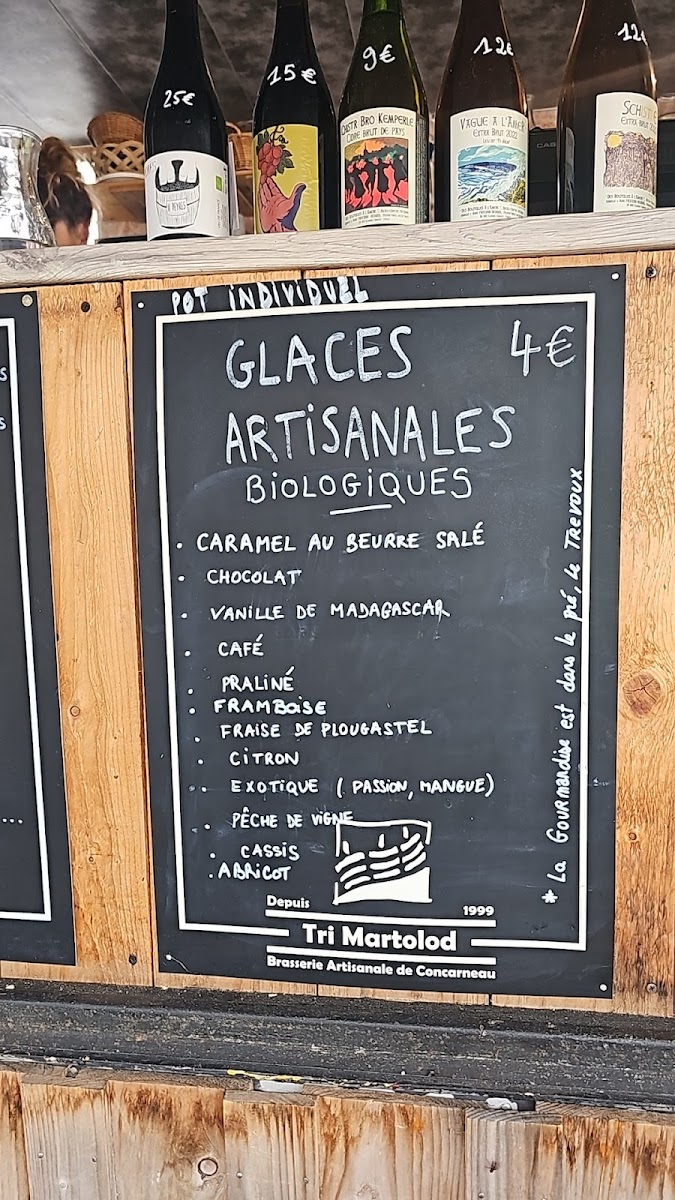 25€
15€
9€
12€
12€
CIDRE BRUT DE PAYS
VAGUE A L'AME
EXTRA BRUT 2022
EXTRA BRUT
POT INDIVIDUEL
GLACES 4€
ARTISANALES
BIOLOGIQUES
• CARAMEL AU BEURRE SALÉ
• CHOCOLAT
• VANILLE DE MADAGASCAR
• CAFÉ
• PRALINÉ
• FRAMBOISE
• FRAISE DE PLOUGASTEL
• CITRON
• EXOTIQUE ( PASSION, MANGUE)
• PÊCHE DE VIGNE
• CASSIS
• ABRICOT
* La Gourmandise est dans le pré, Le Trevoux
Depuis 1999
Tri Martolod
Brasserie Artisanale de Concarneau